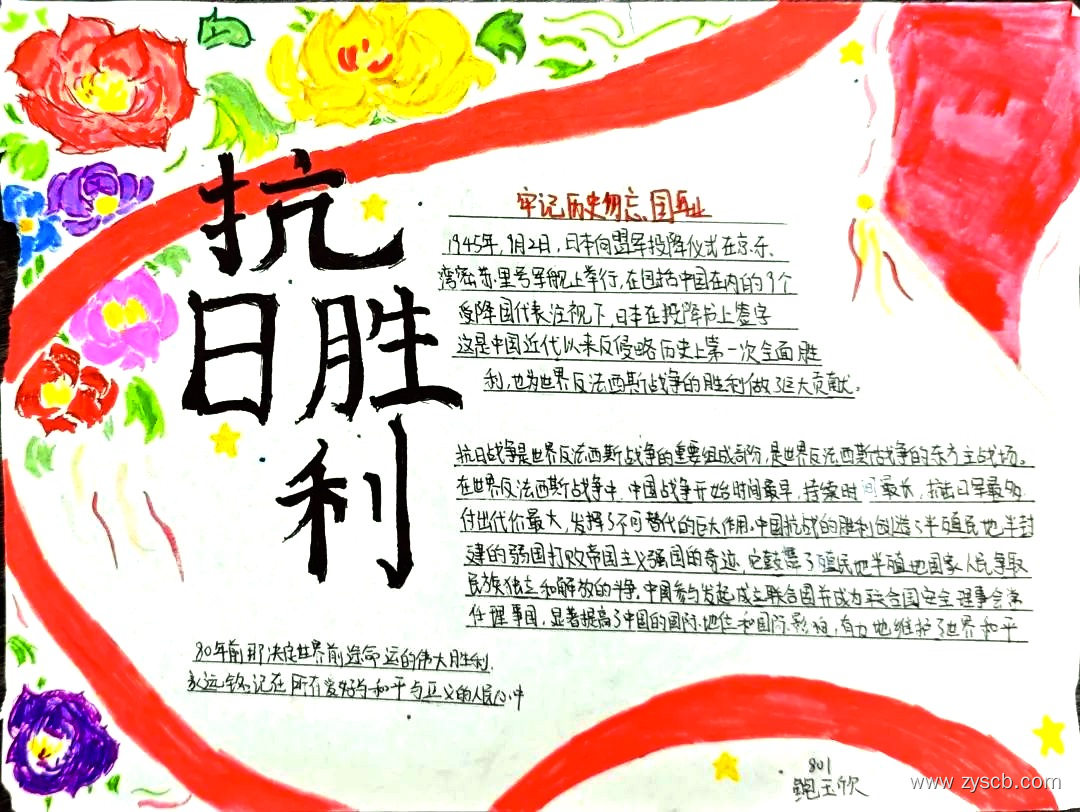 抗
日胜
利
牢记历史勿忘国耻
1945年,9月2日,日本向盟军投降仪式在东京
湾密苏里号军舰上举行,在包括中国在内的9个
受降国代表注视下,日本在投降书上签字
这是中国近代以来反侵略历史上第一次全面胜
利,也为世界反法西斯战争的胜利做了巨大贡献。
抗日战争是世界反法西斯战争的重要组成部份,是世界反法西斯战争的东方主战场。
在世界反法西斯战争中,中国战争开始时间最早,持续时间最长,抗击日军最多
付出代价最大,发挥了不可替代的巨大作用。中国抗战的胜利创造了半殖民地半封
建的弱国打败帝国主义强国的奇迹,它鼓舞了殖民地半殖地国家人民争取
民族独立和解放的斗争,中国参与发起成立联合国并成为联合国安全理事会常
任理事国,显著提高了中国的国际地位和国际影响,有力地维护了世界和平
80年前那决定世界前途命运的伟大胜利,
永远铭记在所有爱好与和平与正义的人民心中
801
鲍玉欣
www.zyscb.com